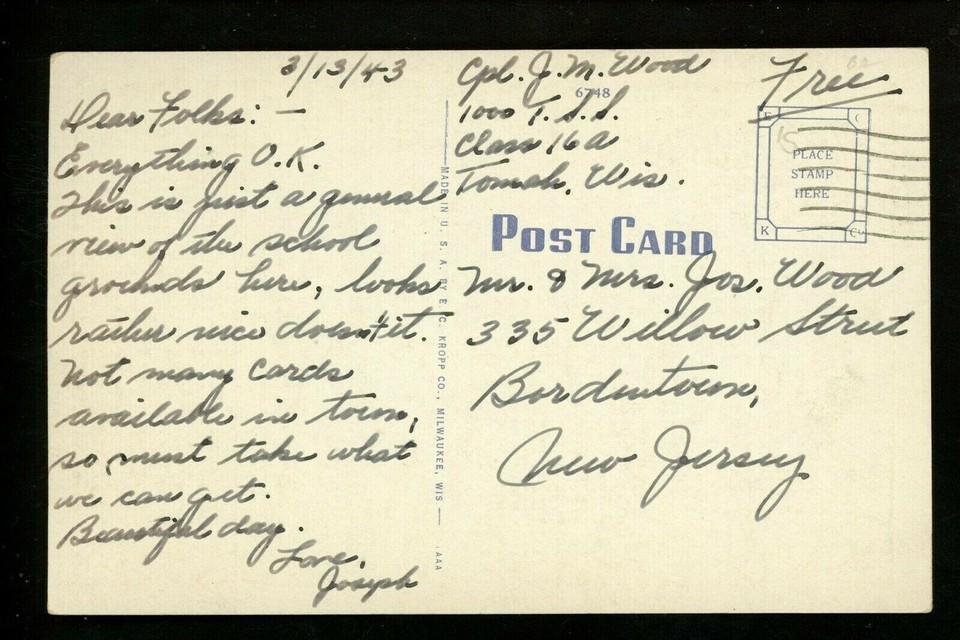 3/13/43
Dear Folks: —
Everything O.K.
This is just a general
view of the school
grounds here, looks
rather nice doesn't it.
Not many cards
available in town,
so must take what
we can get.
Beautiful day.
Love,
Joseph
MADE IN U. S. A. BY E. C. KROPP CO., MILWAUKEE, WIS
AAA
Cpl. J. M. Wood
6748
1000 T. S. S.
Class 16A
Tomah, Wis.
Free
15
PLACE
STAMP
HERE
E C
K Co
POST CARD
Mr. & Mrs. Jos. Wood
335 Willow Street
Bordentown,
New Jersey